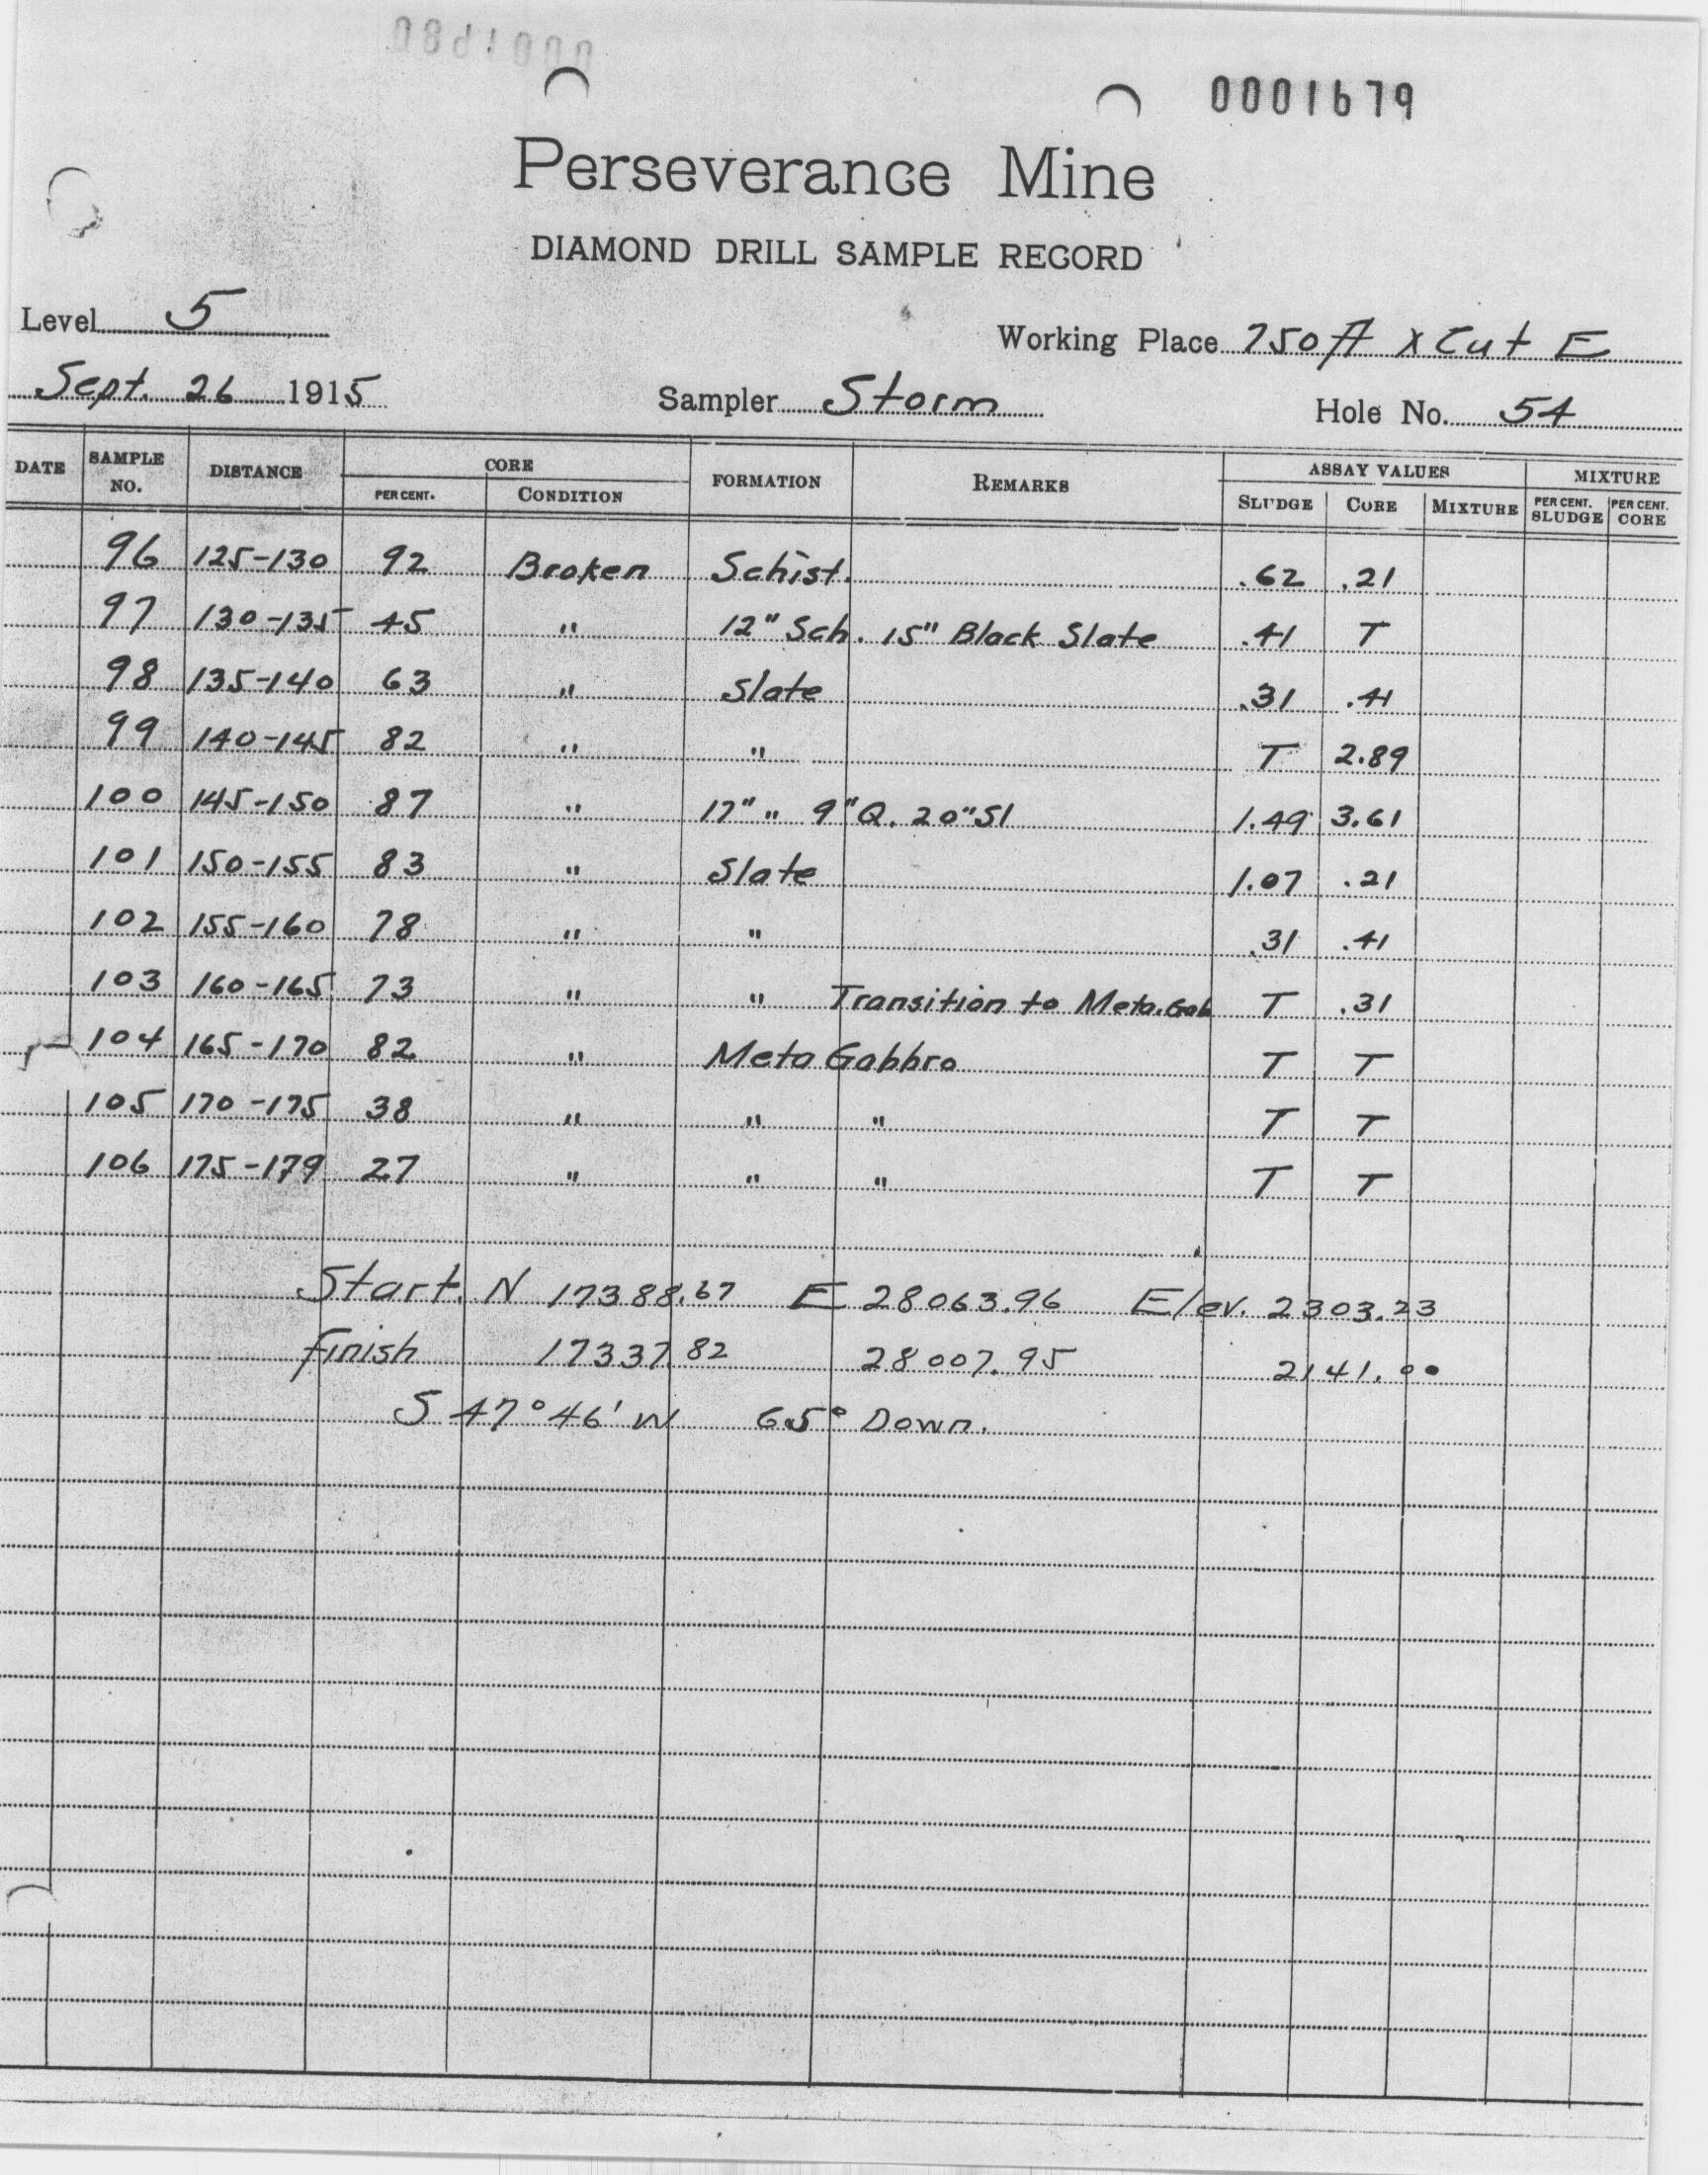 0001680
0001679
Perseverance Mine
DIAMOND DRILL SAMPLE RECORD
Level 5
Working Place 750 ft x Cut E
Sept. 26 1915 Sampler Storm Hole No. 54
DATE SAMPLE NO. DISTANCE CORE PER CENT. CONDITION FORMATION REMARKS ASSAY VALUES SLUDGE CORE MIXTURE MIXTURE PER CENT. SLUDGE PER CENT. CORE
96 125-130 92 Broken Schist. .62 .21
97 130-135 45 " 12" Sch. 15" Black Slate .41 T
98 135-140 63 " Slate .31 .41
99 140-145 82 " " T 2.89
100 145-150 87 " 17" " 9" Q. 20" Sl 1.49 3.61
101 150-155 83 " Slate 1.07 .21
102 155-160 78 " " .31 .41
103 160-165 73 " " Transition to Meta.Gab T .31
104 165-170 82 " Meta Gabbro T T
105 170-175 38 " " " T T
106 175-179 27 " " " T T
Start. N 17388.67 E 28063.96 Elev. 2303.23
Finish 17337.82 28007.95 2141.00
S 47° 46' W 65° Down.